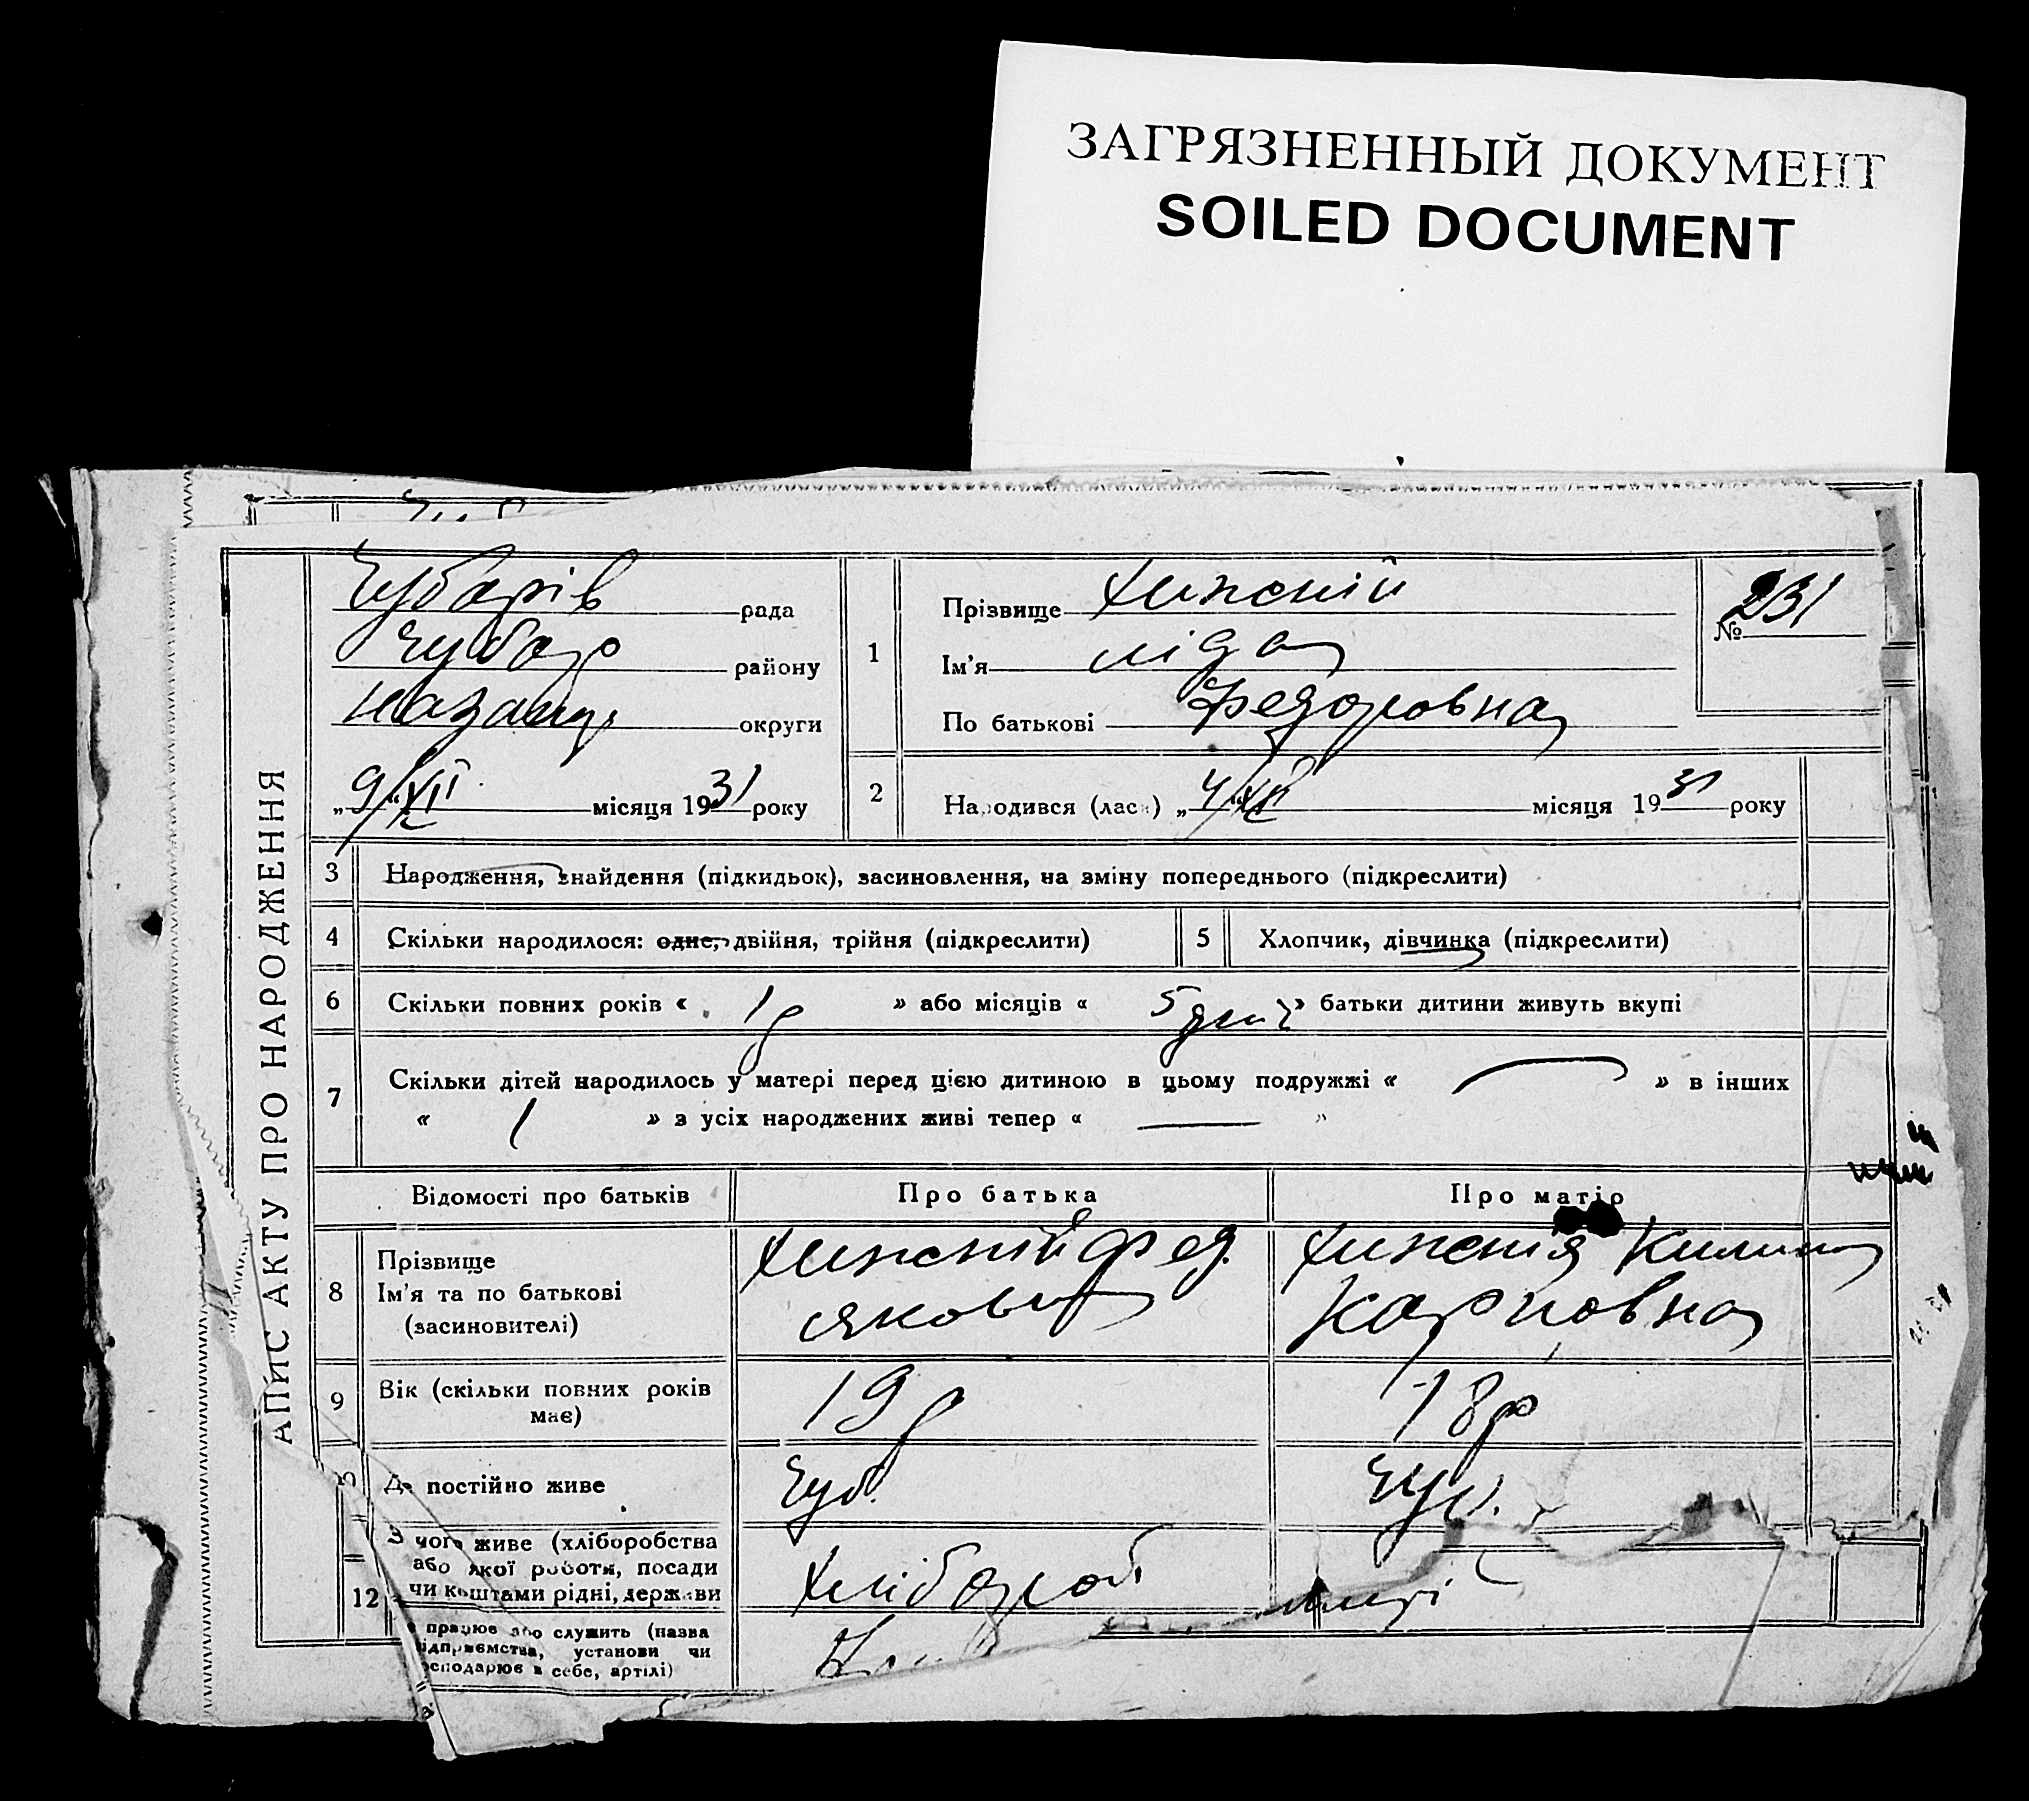 ЗАГРЯЗНЕННЫЙ ДОКУМЕНТ
SOILED DOCUMENT
АПИС АКТУ ПРО НАРОДЖЕННЯ
Чубарів рада
Чубар району
округи
„9/XII“ місяця 1931 року
1
Прізвище Хижній
Ім'я Ліда
По батькові Федоровна
№ 231
2
Народився (лась) „4/XII“ місяця 1931 року
3 Народження, знайдення (підкидьок), засиновлення, на зміну попереднього (підкреслити)
4 Скільки народилося: одне, двійня, трійня (підкреслити)
5 Хлопчик, дівчинка (підкреслити)
6 Скільки повних років « 1 р » або місяців « 5 » батьки дитини живуть вкупі
7 Скільки дітей народилось у матері перед цією дитиною в цьому подружжі « — » в інших
« 1 » з усіх народжених живі тепер « — »
Відомості про батьків Про батька Про матір
8 Прізвище
Ім'я та по батькові
(засиновителі)
Хижній Фед.
Якович
Хижнія Килина
Карповна
9 Вік (скільки повних років
має)
19 р
18 р
Де постійно живе
Чуб.
Чуб.
З чого живе (хліборобства
або якої роботи, посади
чи коштами рідні, держави
Хлібороб
12
працює або служить (назва
ідприємства, установи чи
осподарює в себе, артілі)